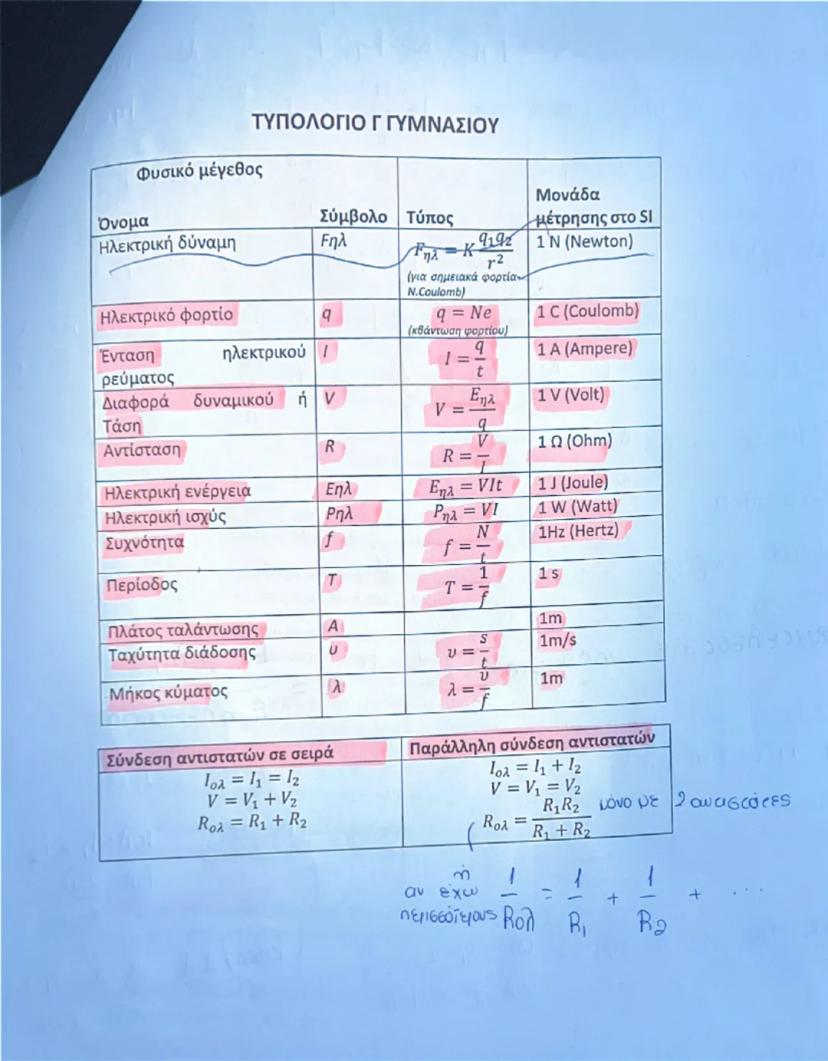 ΤΥΠΟΛΟΓΙΟ Γ ΓΥΜΝΑΣΙΟΥ
Φυσικό μέγεθος
Όνομα Σύμβολο Τύπος Μονάδα μέτρησης στο SI
Ηλεκτρική δύναμη Fηλ F_ηλ = K q₁q₂/r² 1 N (Newton)
(για σημειακά φορτία
N.Coulomb)
Ηλεκτρικό φορτίο q q = Ne 1 C (Coulomb)
(κβάντωση φορτίου)
Ένταση ηλεκτρικού ρεύματος I I = q/t 1 A (Ampere)
Διαφορά δυναμικού ή Τάση V V = E_ηλ/q 1 V (Volt)
Αντίσταση R R = V/I 1 Ω (Ohm)
Ηλεκτρική ενέργεια Εηλ E_ηλ = VIt 1 J (Joule)
Ηλεκτρική ισχύς Ρηλ P_ηλ = VI 1 W (Watt)
Συχνότητα f f = N/t 1Hz (Hertz)
Περίοδος T T = 1/f 1 s
Πλάτος ταλάντωσης A 1m
Ταχύτητα διάδοσης υ υ = s/t 1m/s
Μήκος κύματος λ λ = υ/f 1m
Σύνδεση αντιστατών σε σειρά
I_ολ = I₁ = I₂
V = V₁ + V₂
R_ολ = R₁ + R₂
Παράλληλη σύνδεση αντιστατών
I_ολ = I₁ + I₂
V = V₁ = V₂
R_ολ = R₁R₂/(R₁ + R₂) μόνο με 2
ή
αν έχω
περισσότερους 1/Rολ = 1/R₁ + 1/R₂ + ...